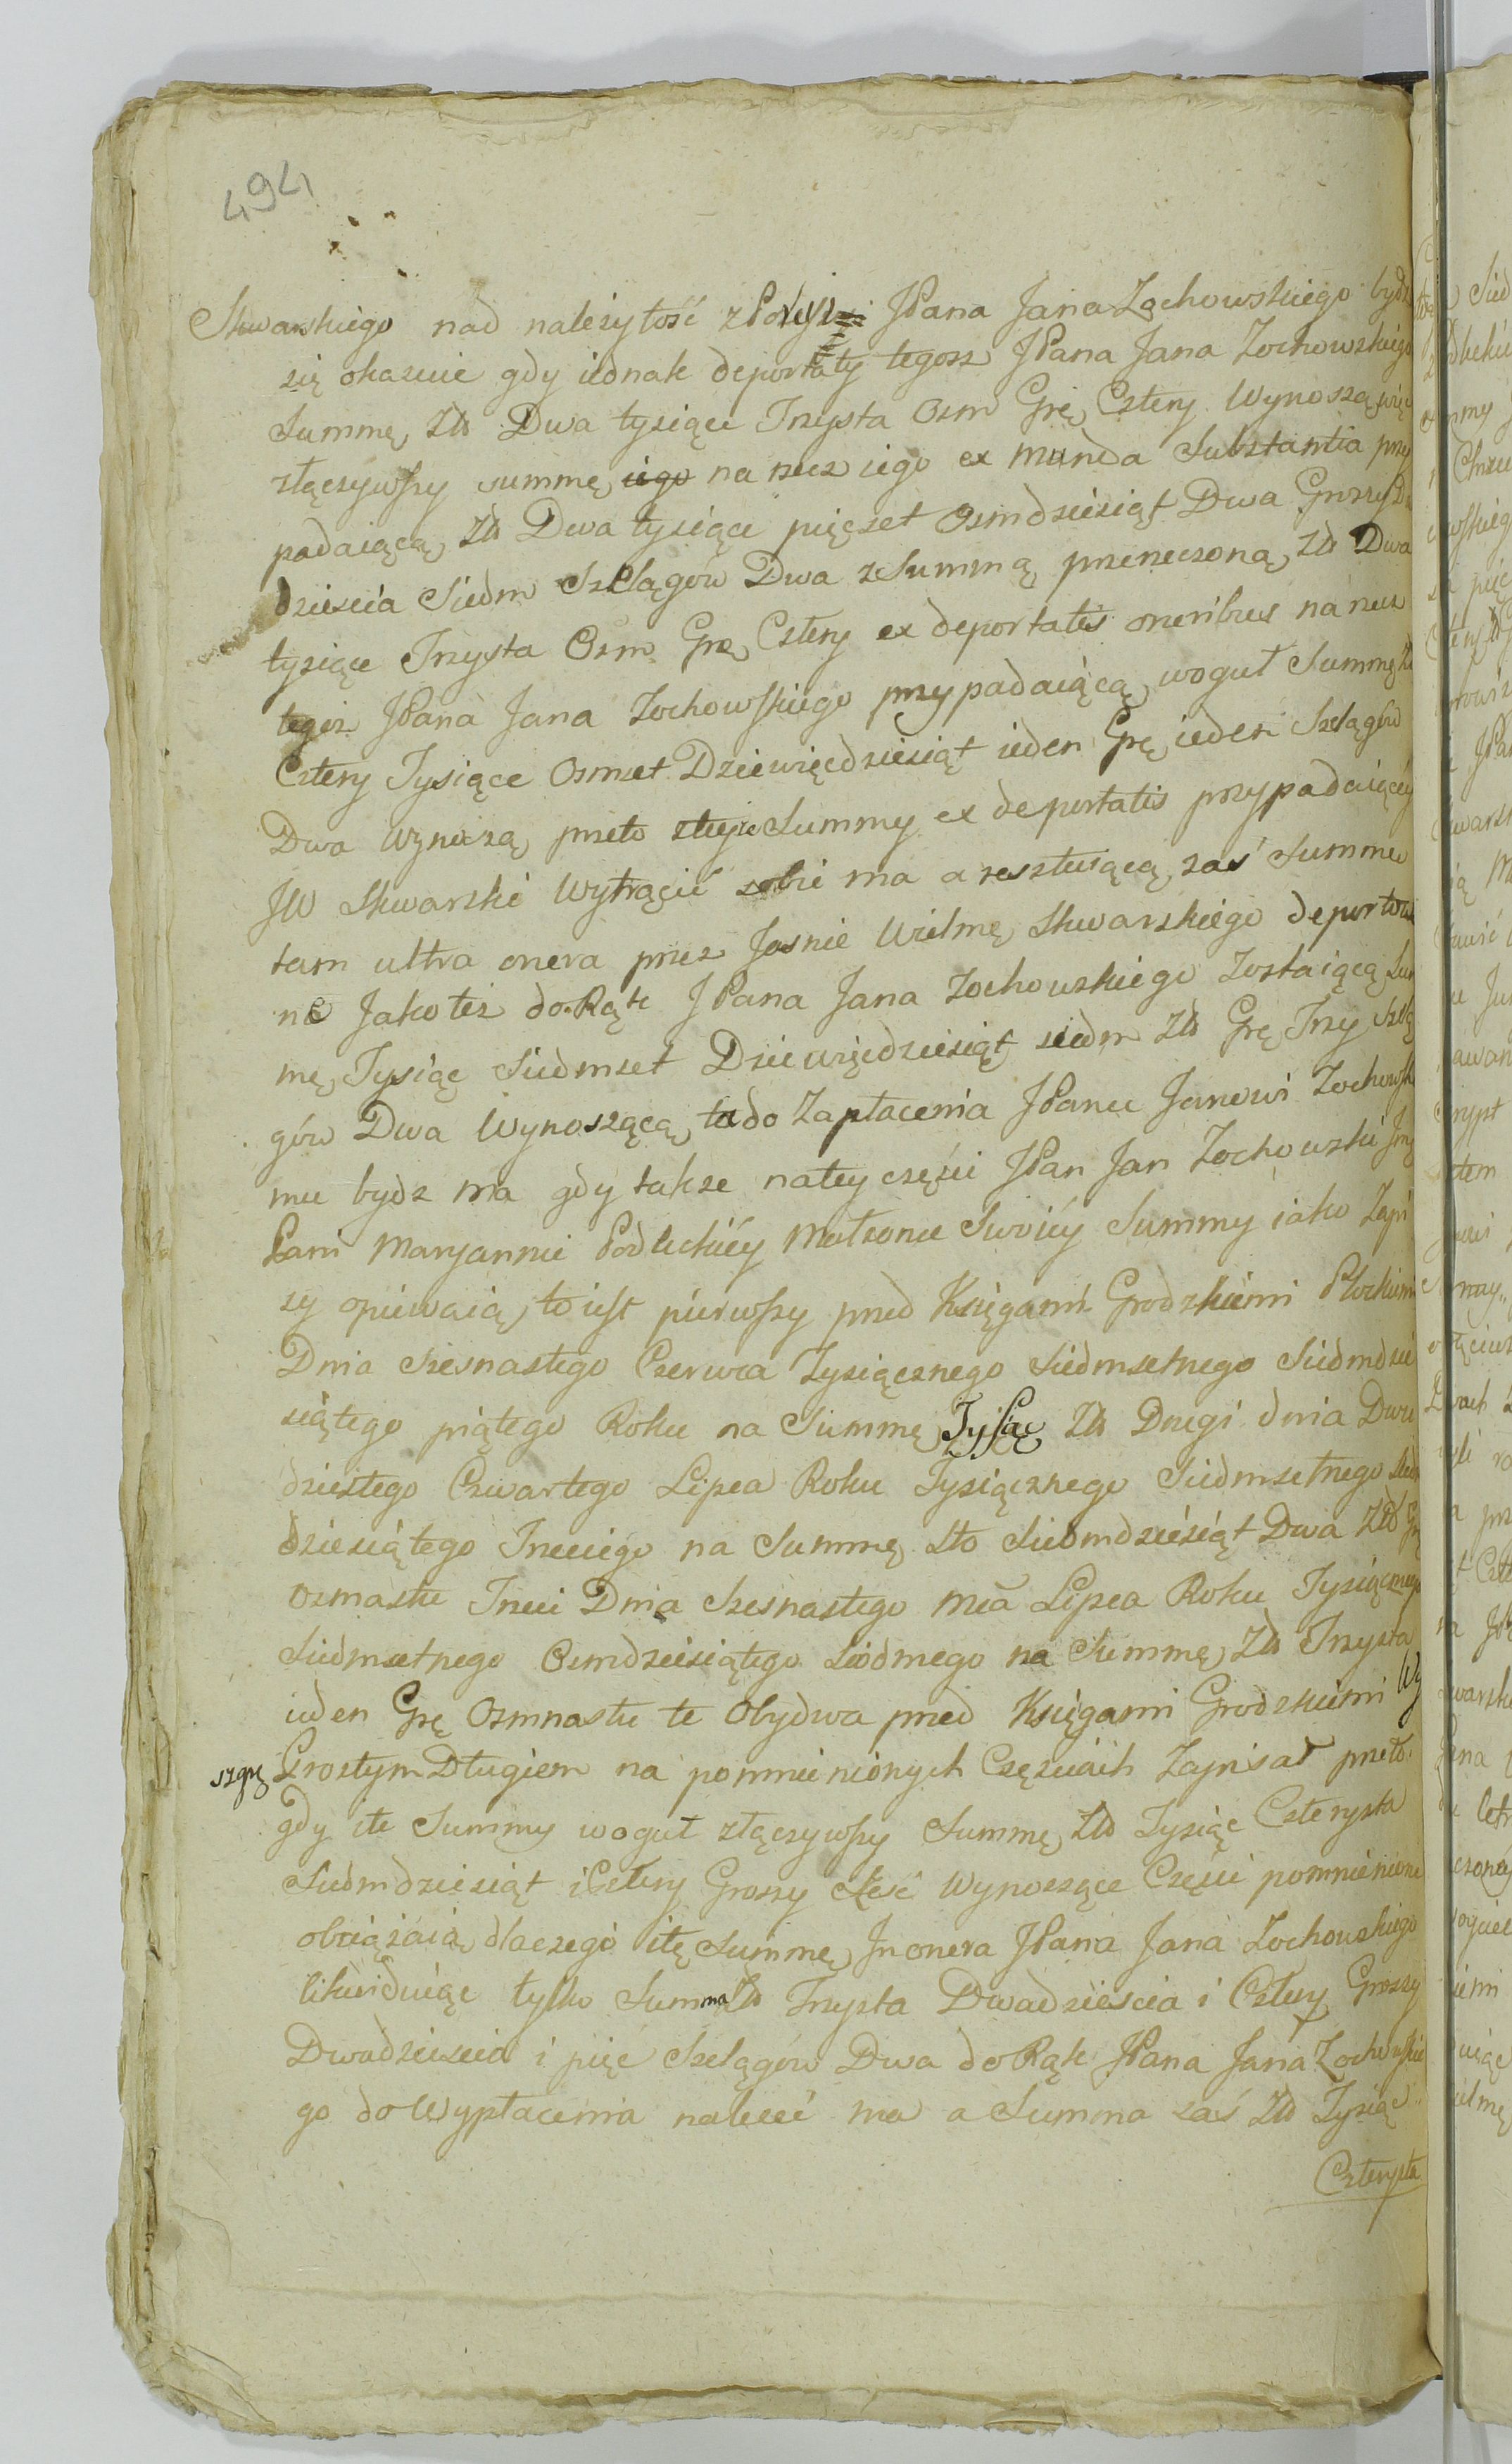 494
Skwarskiego nad należytość z JPana Jana Zochowskiego bydz
się okazuie gdy iednak deportaty tegosz JPana Jana Zochowskiego
Summę Zło Dwa tysiące Trzysta Osm Grę Cztery Wynoszą więc
złączywszy summę iego na rzecz iego ex munda Substantia przy
padaiącą Zło Dwa tysiące pięcset Osmdziesiąt Dwa Groszy Dwa
dziescia Siedm Szelągów Dwa z Summą przerzeczoną Zło Dwa
tysiące Trzysta Osm Grę Cztery ex deportatis oneribus na rzecz
tegoż JPana Jana Zochowskiego przypadaiącą woguł Summę Zło
Cztery Tysiące Osmset Dziewięcdziesiąt ieden Grę ieden Szelągów
Dwa wynoszą przeto z teyże Summy ex deportatis przypadaiącey
JW Skwarski Wytrącić sobie ma a resztuiącą zaś Summe
tam ultra onera przez Jasnie Wielmę Skwarskiego deportowa
ne Jakoteż do Rąk JPana Jana Zochowskiego Zostaiącą Sum
mę Tysiąc Siedmset Dziewięcdziesiąt siedm Zło Grę Trzy Szelą
gów Dwa Wynoszącą ta do Zapłacenia JPanu Janowi Zochowsk
mu bydz ma gdy takze na tey części JPan Jan Zochowski Jmę
Pani Maryannie Podleckiéy Małzonce Swoiéy Summy iako Zapi
sy opiewaią to iest pierwszy przed Księgami Grodzkiemi Płockiemi
Dnia Szesnastego Czerwca Tysiącznego Siedmsetnego Siedmdzie
siątego piątego Roku na Summę Tysiąc Zło Drugi dnia Dwu
dziestego Czwartego Lipca Roku Tysiącznego Siedmsetnego Siedm
dziesiątego Trzeciego na Summę Sto Siedmdziesiąt Dwa Zło Grę
Osmastu Trzeci Dnia Szesnastego Mca Lipca Roku Tysiącznego
Siedmsetnego Osmdziesiątego Siódmego na Summę Zło Trzysta
ieden Grę Osmnastu te Obydwa przed Księgami Grodzkiemi Wy
szgrę Prostym Długiem na pomnienionych Częściach Zapisał przeto
gdy ite Summy woguł złączywszy Summę Zło Tysiąc Czterysta
Siedmdziesiąt i Cztery Groszy Sześć Wynoszące Części pomnienione
obciążaią dlaczego itę Summę In onera JPana Jana Zochowskiego
likwiduiąc tylko Summa Zło Trzysta Dwadzieścia i Cztery Groszy
Dwadziescia i pięc Szelągów Dwa do Rąk JPana Jana Zochowskie
go do Wypłacenia należeć ma a Summa zaś Zło Tysiąc
Czterysta